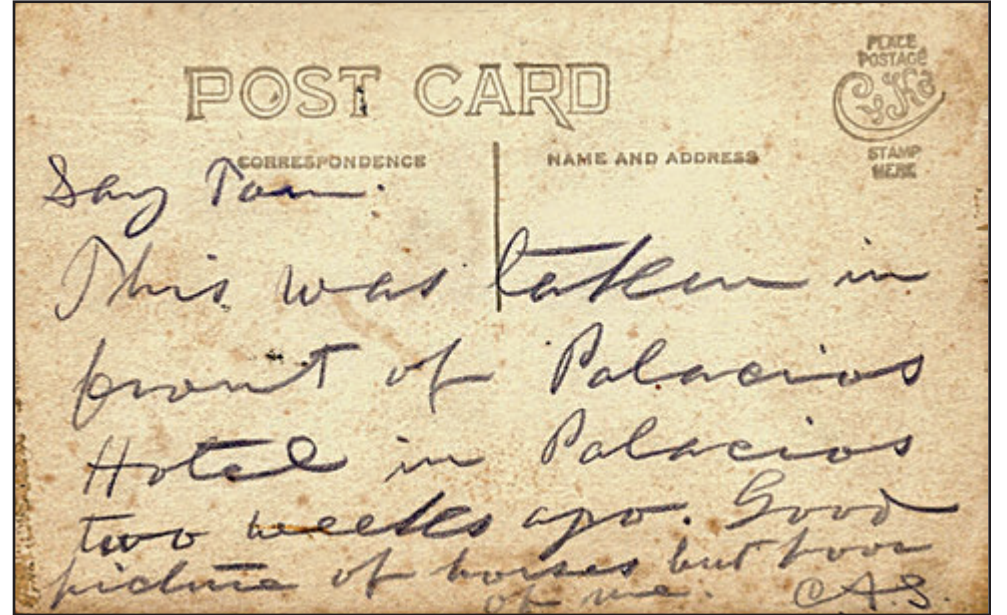 POST CARD
PLACE
POSTAGE
CyKo
STAMP
HERE
CORRESPONDENCE
NAME AND ADDRESS
Say Tom.
This was taken in
front of Palacios
Hotel in Palacios
two weeks ago. Good
picture of horses but poor
of me. CAS.